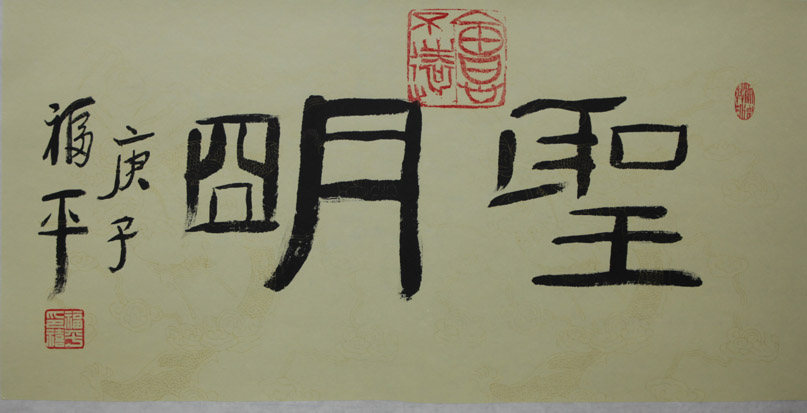 聖朙
庚子
福平